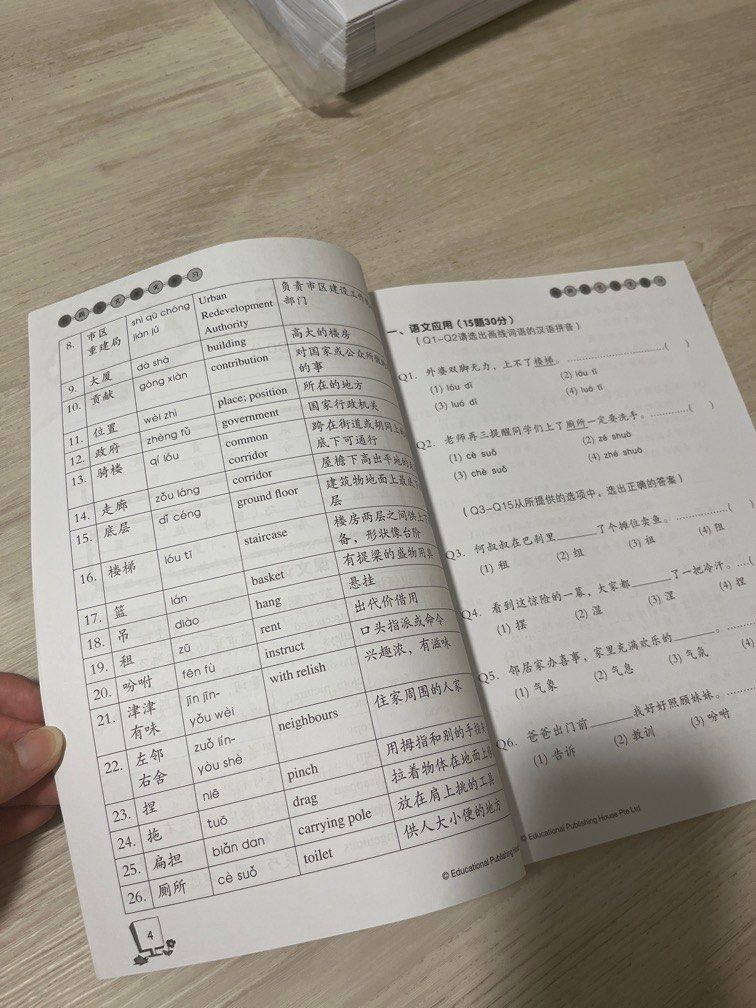 8. 市区重建局 shì qū chóng jiàn jú Urban Redevelopment Authority 负责市区建设工作 部门
9. 大厦 dà shà building 高大的楼房
10. 贡献 gòng xiàn contribution 对国家或公众所 的事
11. 位置 wèi zhì place; position 所在的地方
12. 政府 zhèng fǔ government 国家行政机关
13. 骑楼 qí lóu common corridor 跨在街道或胡同上 底下可通行
14. 走廊 zǒu láng corridor 屋檐下高出平地的
15. 底层 dǐ céng ground floor 建筑物地面上最底 层
16. 楼梯 lóu tī staircase 楼房两层之间供上下 备，形状像台阶
17. 篮 lán basket 有提梁的盛物用具
18. 吊 diào hang 悬挂
19. 租 zū rent 出代价借用
20. 吩咐 fēn fù instruct 口头指派或命令
21. 津津有味 jīn jīn-yǒu wèi with relish 兴趣浓，有滋味
22. 左邻右舍 zuǒ lín-yòu shè neighbours 住家周围的人家
23. 捏 niē pinch 用拇指和别的手指
24. 拖 tuō drag 拉着物体在地面上
25. 扁担 biǎn dan carrying pole 放在肩上挑的工具
26. 厕所 cè suǒ toilet 供人大小便的地方
© Educational Publishing
4
一、语文应用（15题30分）
（Q1-Q2请选出画线词语的汉语拼音）
Q1. 外婆双脚无力，上不了楼梯。 ( )
(1) lóu dī (2) lóu tī
(3) luó dī (4) luó tī
Q2. 老师再三提醒同学们上了厕所一定要洗手。 ( )
(1) cè suǒ (2) zé shuǒ
(3) chè suǒ (4) zhé shuǒ
（Q3-Q15从所提供的选项中，选出正确的答案）
Q3. 何叔叔在巴刹里______了个摊位卖鱼。 ( )
(1) 租 (2) 组 (3) 祖 (4) 阻
Q4. 看到这惊险的一幕，大家都______了一把冷汗。 (
(1) 摆 (2) 湿 (3) 涅 (4) 捏
Q5. 邻居家办喜事，家里充满欢乐的______。
(1) 气象 (2) 气息 (3) 气氛 (4)
Q6. 爸爸出门前______我好好照顾妹妹。
(1) 告诉 (2) 教训 (3) 吩咐
© Educational Publishing House Pte Ltd